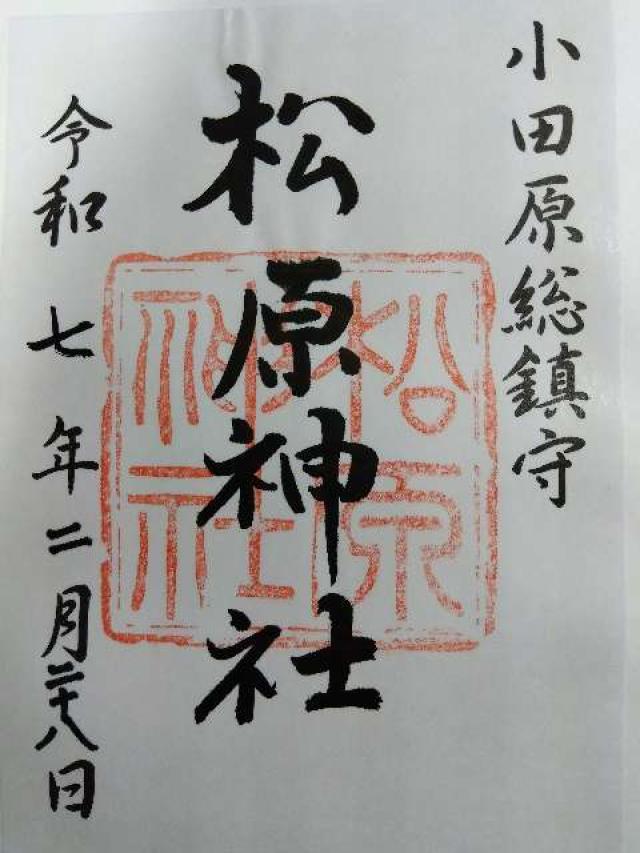 小田原総鎮守
松原神社
松原神社
令和七年二月二十八日